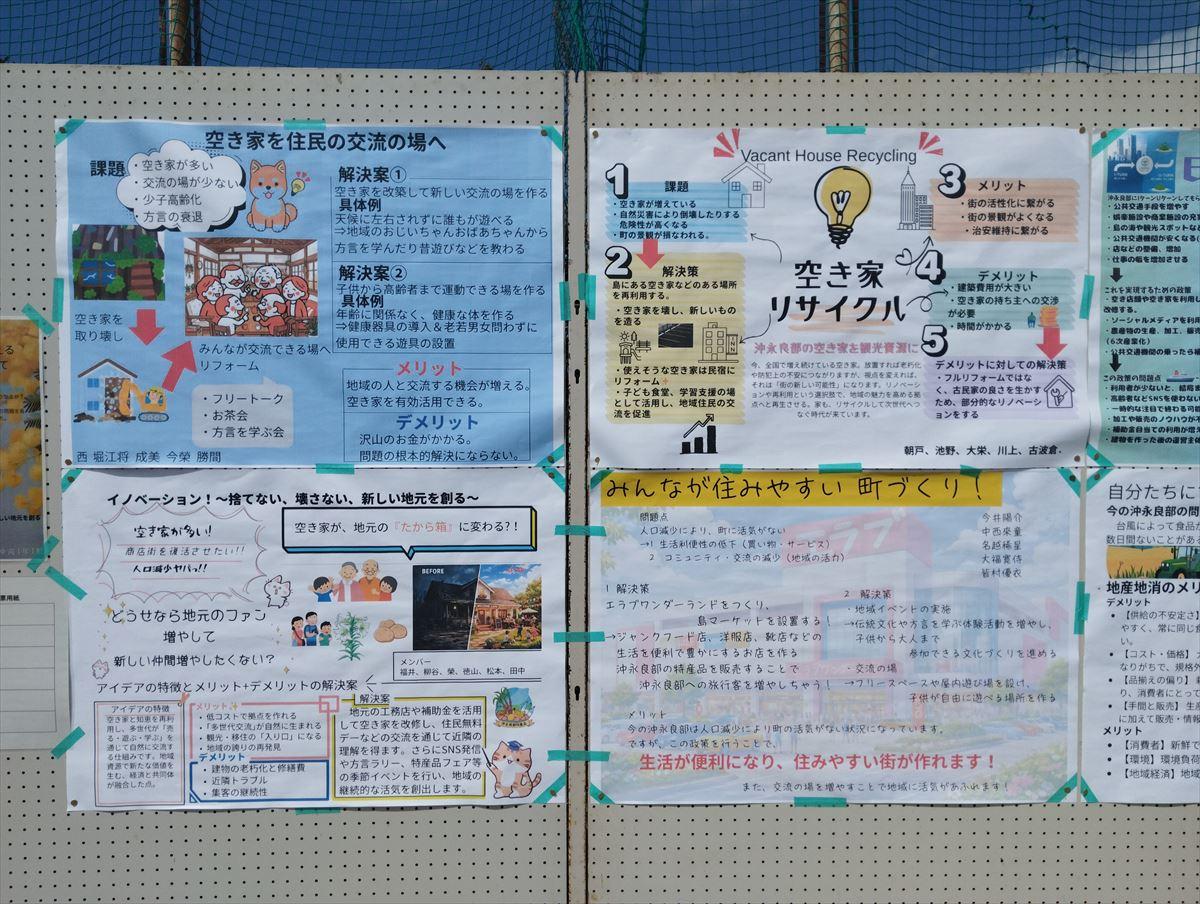 空き家を住民の交流の場へ
課題
・空き家が多い
・交流の場が少ない
・少子高齢化
・方言の衰退
空き家を
取り壊し
みんなが交流できる場へ
リフォーム
・フリートーク
・お茶会
・方言を学ぶ会
解決案①
空き家を改築して新しい交流の場を作る
具体例
天候に左右されずに誰もが遊べる
⇒地域のおじいちゃんおばあちゃんから
方言を学んだり昔遊びなどを教わる
解決案②
子供から高齢者まで運動できる場を作る
具体例
年齢に関係なく、健康な体を作る
⇒健康器具の導入&老若男女問わずに
使用できる遊具の設置
メリット
地域の人と交流する機会が増える。
空き家を有効活用できる。
デメリット
沢山のお金がかかる。
問題の根本的解決にならない。
西 堀江将 成美 今榮 勝間
Vacant House Recycling
空き家
リサイクル
1
課題
・空き家が増えている
・自然災害により倒壊したりする
危険性が高くなる
・町の景観が損なわれる。
2
解決策
島にある空き家などのある場所
を再利用する。
・空き家を壊し、新しいもの
を造る
INN
・使えそうな空き家は民宿に
リフォーム
・子ども食堂、学習支援の場
として活用し、地域住民の交
流を促進
3
メリット
・街の活性化に繋がる
・街の景観がよくなる
・治安維持に繋がる
4
デメリット
・建築費用が大きい
・空き家の持ち主への交渉
が必要
・時間がかかる
5
デメリットに対しての解決策
・フルリフォームではな
く、古民家の良さを生かす
ため、部分的なリノベーシ
ョンをする
沖永良部の空き家を観光資源に
今、全国で増え続けている空き家。放置すれば老朽化
や防犯上の不安につながりますが、視点を変えれば、
それは「街の新しい可能性」になります。リノベーシ
ョンや再利用という選択肢で、地域の魅力を高める拠
点へと再生させる。家も、リサイクルして次世代へつ
なぐ時代が来ています。
朝戸、池野、大栄、川上、古波倉、
イノベーション！～捨てない、壊さない、新しい地元を創る～
空き家が多い!
商店街を復活させたい!!
人口減少ヤバっ!!
空き家が、地元の『たから箱』に変わる?！
BEFORE
どうせなら地元のファン
増やして
新しい仲間増やしたくない？
メンバー
福井、柳谷、榮、徳山、松本、田中
アイデアの特徴とメリット+デメリットの解決案
アイデアの特徴
空き家と知恵を再利
用し、多世代が「売
る・遊ぶ・学ぶ」を
通じて自然に交流す
る仕組みです。地域
資源で新たな価値を
生む、経済と共同体
が融合した点。
メリット
・低コストで拠点を作れる
・「多世代交流」が自然に生まれる
・観光・移住の「入り口」になる
・地域の誇りの再発見
デメリット
・建物の老朽化と修繕費
・近隣トラブル
・集客の継続性
解決案
地元の工務店や補助金を活用
して空き家を改修し、住民無料
デーなどの交流を通して近隣の
理解を得ます。さらにSNS発信
や方言ラリー、特産品フェア等
の季節イベントを行い、地域の
継続的な活気を創出します。
みんなが住みやすい 町づくり！
問題点
人口減少により、町に活気がない
→1 生活利便性の低下（買い物・サービス）
2 コミュニティ・交流の減少（地域の活力）
今井陽介
中西來童
名越稀星
大福寛侍
皆村優衣
1 解決策
エラブワンダーランドをつくり、
島マーケットを設置する！
→ジャンクフード店、洋服店、靴店などの
生活を便利で豊かにするお店を作る
沖永良部の特産品を販売することで
沖永良部への旅行客を増やしちゃう！
2 解決策
・地域イベントの実施
→伝統文化や方言を学ぶ体験活動を増やし、
子供から大人まで
参加できる文化づくりを進める
・交流の場
→フリースペースや屋内遊び場を設け、
子供が自由に遊べる場所を作る
メリット
今の沖永良部は人口減少により町の活気がない状況になっています。
ですが、この政策を行うことで、
生活が便利になり、住みやすい街が作れます！
また、交流の場を増やすことで地域に活気があふれます！
・公共交通手段を増やす
・島の海や観光スポットなど
・公共交通機関が安くなる
・店などの整備、増加
・仕事の幅を増加させる
これを実現するための政策
・空き店舗や空き家を利用
改修する。
・ソーシャルメディアを利用
・農産物の生産、加工、販
（6次産業化）
・公共交通機関の乗ったら
この政策の問題点
・利用者が少ないと、結局
・高齢者などSNSを使わない
・一時的な注目で終わる可能
・加工や販売のノウハウが
・補助金目当ての利用が増え
・建物を作った後の運営主体
自分たちに
今の沖永良部の問
台風によって食品が
数日間ないことがある
地産地消のメリ
デメリット
・【供給の不安定さ】
やすく、常に同じ
い。
・【コスト・価格】
なりがちで、規格外
・【品揃えの偏り】
り、消費者にとって
・【手間と販売】生産
に加えて販売・情報
メリット
・【消費者】新鮮で
・【環境】環境負荷
・【地域経済】地域
票用紙